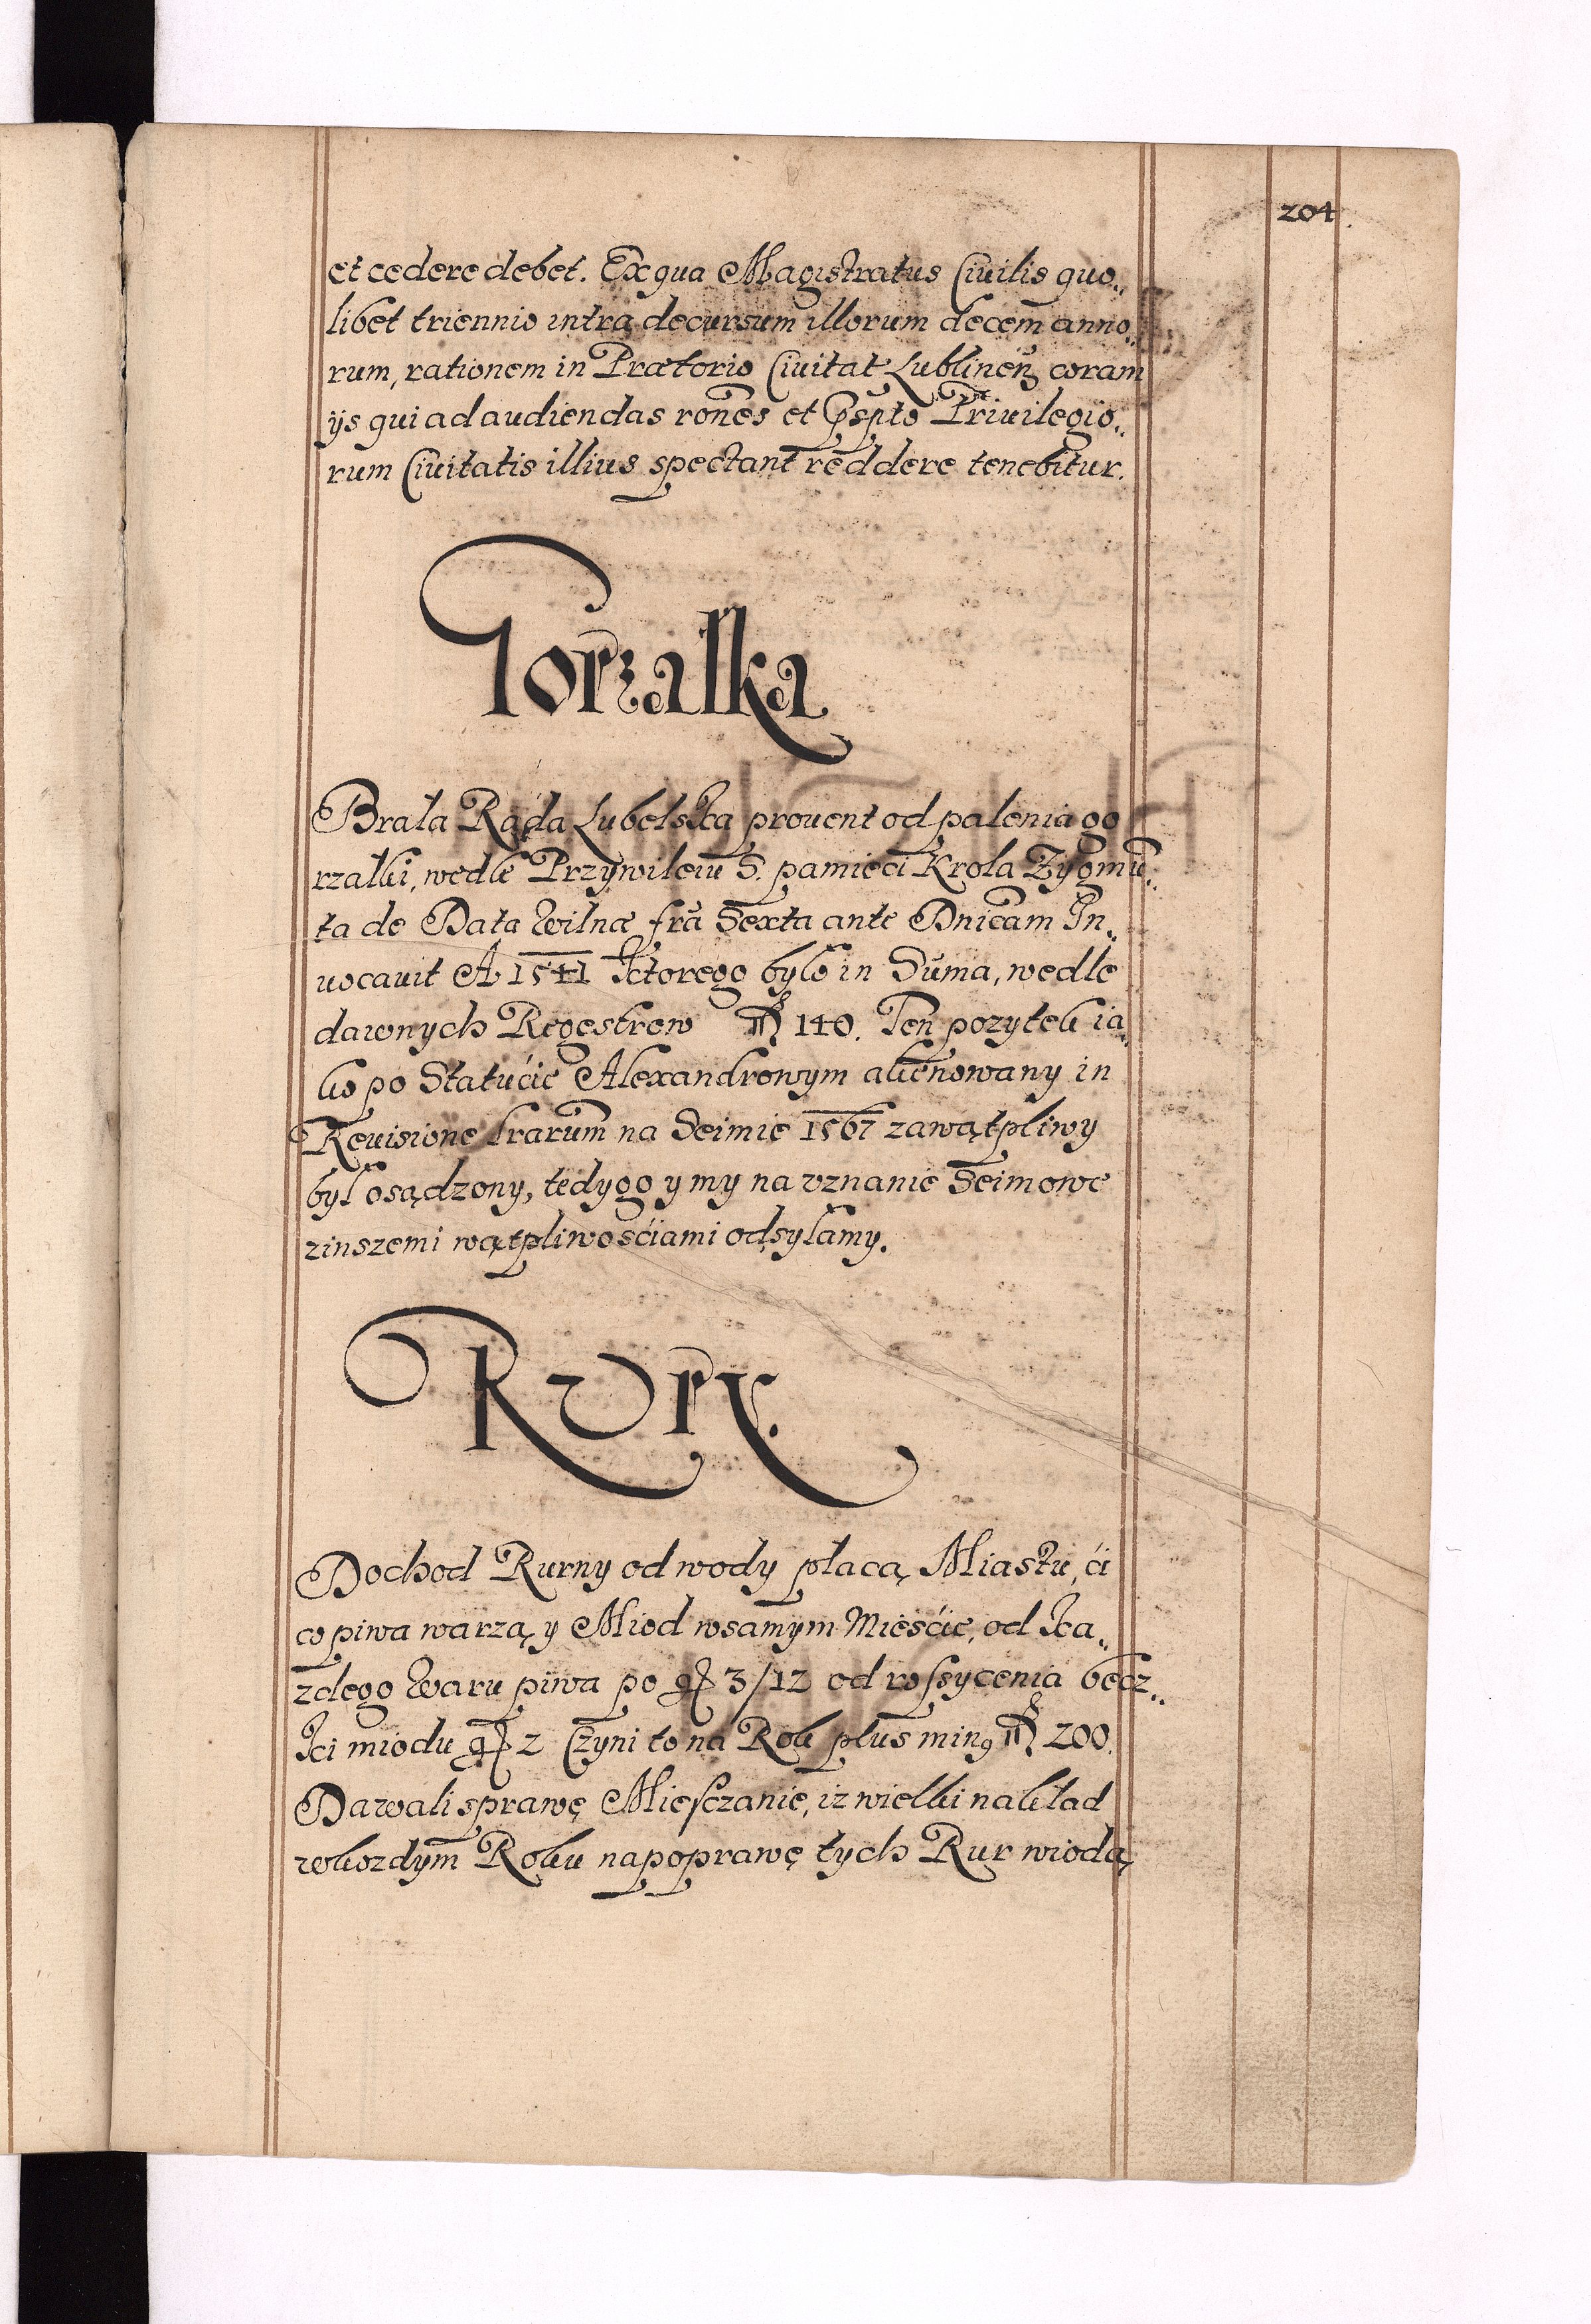 204
et cedere debet. Ex qua Magistratus Ciuilis quo„
libet triennio intra decursum illorum decem̄ anno„
rum, rationem in Prætorio Ciuitat Lublineñ coram
ijs qui ad audiendas ron̄es et Priuilegio„
rum Ciuitatis illius spectant reddere tenebitur.
Gorzałka
Brała Rada Lubelska prouent od palenia go
rzałki, wedle Przywileiu S. pamięci Krola Zygmū„
ta de Data Wilnæ fr̄a Sexta ante Dn̄icam In„
uocauit A 1541 ktorego było in Sum̄a, wedle
dawnych Regestrow 140. Ten pozytek ia„
ko po Statućie Alexandrowym alienowany in
Reuisione lrarum̄ na Seimie 1567 zawątpliwy
był osądzony, tedy go y my na vznanie Seimowe
z inszemi wątpliwośćiami odsyłamy.
Rury.
Dochod Rurny od wody płacą Miastu, ći
co piwa warzą y Miod w samym Mieśćie, od ka„
zdego Waru piwa po g 3/12 od rossycenia becz„
ki miodu g 2 Czyni to na Rok plus min9 200.
Dawali sprawę Miesczanie, iz wielki nakład
w kozdym̄ Roku na poprawę tych Rur wiodą